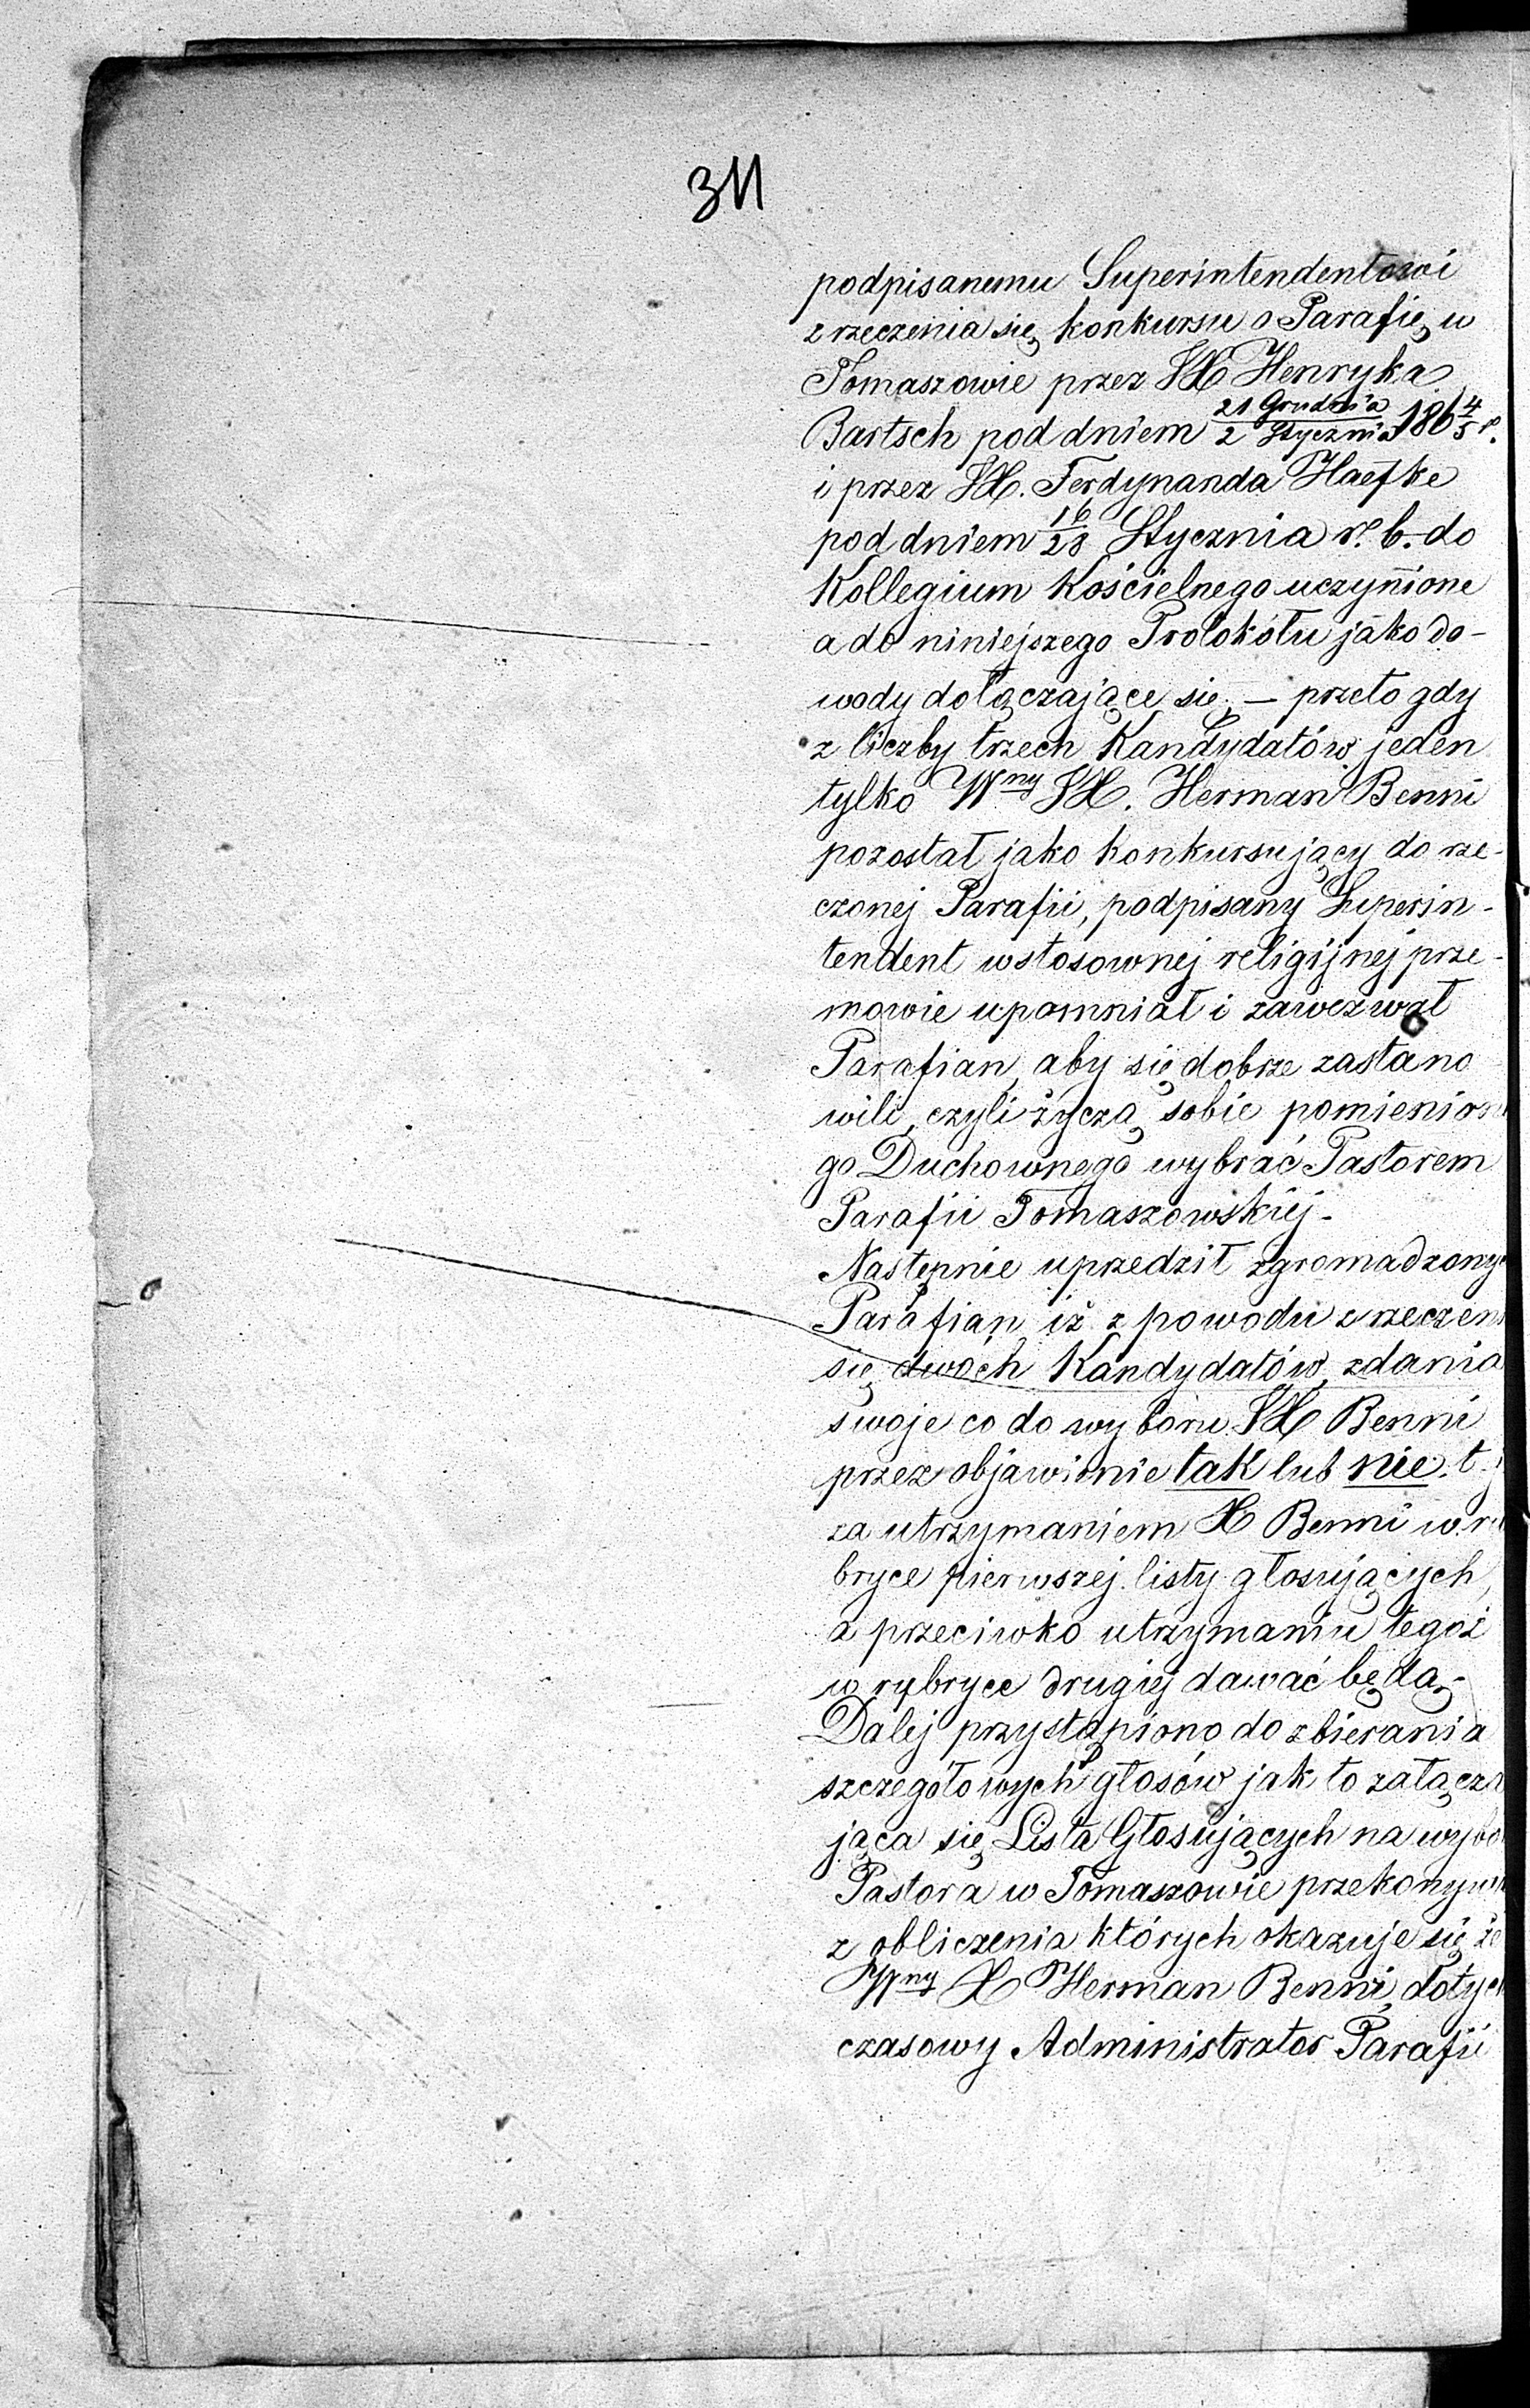 311
podpisanemu Superintendentowi
zrzeczenia się konkursu o Parafię w
Tomaszowie przez JX Henryka
Bartsch pod dniem 21 Grudnia/2 Stycznia 186 4/5 r.
i przez JX. Ferdynanda Haefke
pod dniem 16/28 Stycznia r. b. do
Kollegium Kościelnego uczynione
a do niniejszego Protokółu jako do-
wody dołączające się, – przeto gdy
z liczby trzech Kandydatów jeden
tylko Wny JX. Herman Benni
pozostał jako konkursujący do rze-
czonej Parafii, podpisany Superin-
tendent w stosownej religijnej prze-
mowie upomniał i zawezwał
Parafian, aby się dobrze zastano
wili, czyli życzą sobie pomienion
go Duchownego wybrać Pastorem
Parafii Tomaszowskiej.
Następnie uprzedził zgromadzony
Parafian iż z powodu zrzeczen
się dwóch Kandydatów, zdania
swoje co do wyboru JX Benni
przez objawienie tak lub nie. t. j
za utrzymaniem X Benni w ru
bryce pierwszej listy głosujących,
a przeciwko utrzymaniu tegoż
w rybryce drugiej dawać będą.
Dalej przystąpiono do zbierania
szczegółowych głosów jak to załącza
jąca się Lista Głosujących na wybo
Pastora w Tomaszowie przekonyw
z obliczenia których okazuje się że
Wny X Herman Benni, dotych
czasowy Administrator Parafii